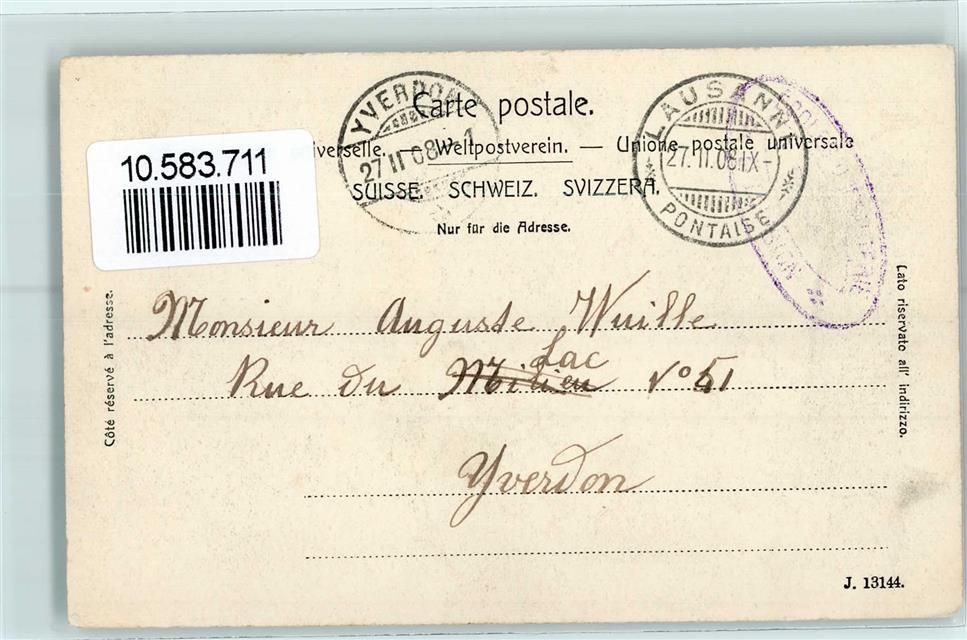 Carte postale.
10.583.711
iverselle. — Weltpostverein. — Unione postale universale
SUISSE. SCHWEIZ. SVIZZERA.
Nur für die Adresse.
YVERDON
27 II 08
LAUSANNE
27.II.08.IX-
PONTAISE
Côté réservé à l'adresse.
Lato riservato all' indirizzo.
Monsieur Auguste Wuille
Lac
Rue du Milieu No 51
Yverdon
J. 13144.